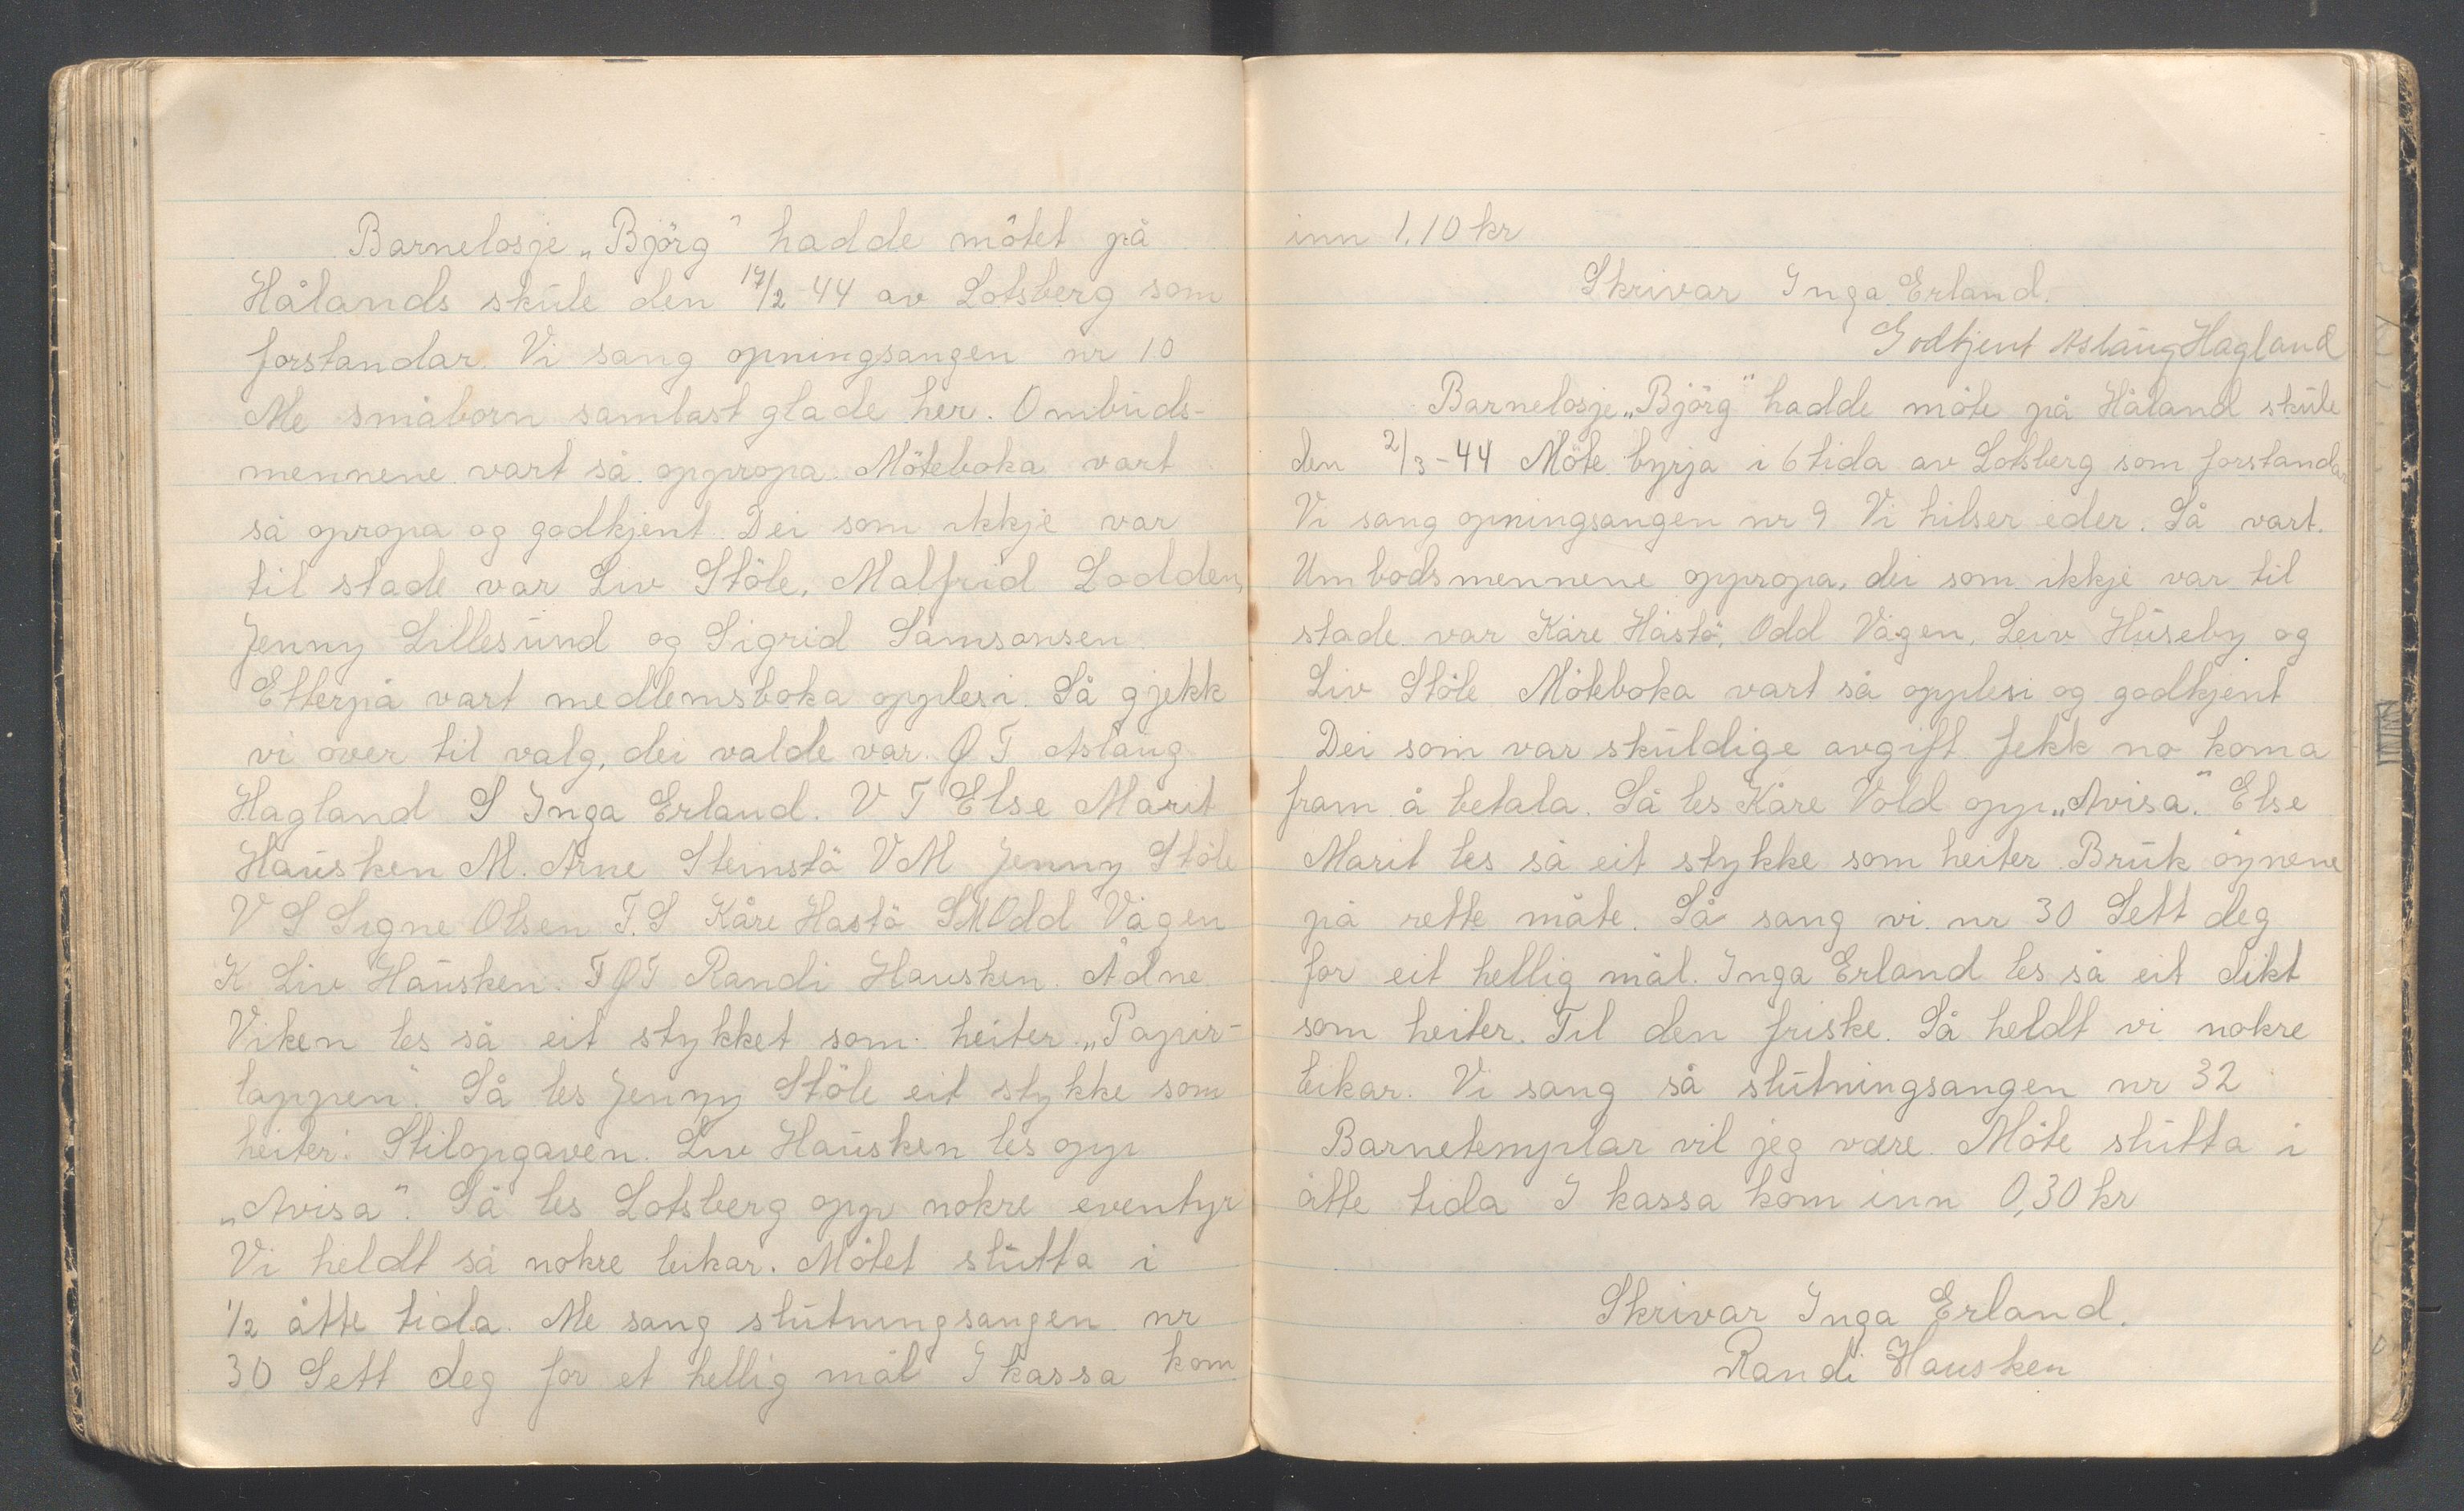 Barnelosje „Björg" hadde mötet på
Hålands skule den 17/2-44 av Lotsberg som
forstandar. Vi sang opningsangen nr 10
Me småborn samlast glade her. Ombuds-
mennene vart så oppropa. Möteboka vart
så opropa og godkjent. Dei som ikkje var
til stade var Liv Stöle, Malfrid Lodden,
Jenny Lillesund og Sigrid Samsonsen.
Etterpå vart medlemsboka opplesi. Så gjekk
vi over til valg, dei valde var. Ø T Aslaug
Hagland S Inga Erland. V T Else Marit
Hausken M. Arne Steinstö VM Jenny Stöle
V S Signe Olsen T.S Kåre Hastö SM Odd Vågen
K Liv Hausken. F Ø T Randi Hausken. Ådne
Viken les så eit stykket som heiter „Papir-
lappen". Så les Jenny Stöle eit stykke som
heiter: Stilopgaven. Liv Hausken les opp
„Avisa". Så les Lotsberg opp nokre eventyr
Vi heldt så nokre leikar. Mötet slutta i
1/2 åtte tida. Me sang slutningsangen nr
30 Sett deg for et hellig mål I kassa kom
inn 1.10 kr
Skrivar Inga Erland.
Godkjent Aslaug Hagland
Barnelosje „Björg" hadde möte på Håland skule
den 2/3-44 Möte byrja i 6 tida av Lotsberg som forstandar
Vi sang opningsangen nr 9 Vi hilser eder. Så vart.
Umbodsmennene oppropa, dei som ikkje var til
stade var Kåre Hastö, Odd Vågen, Leiv Huseby og
Liv Stöle Möteboka vart så opplesi og godkjent
Dei som var skuldige avgift fekk no koma
fram å betala. Så les Kåre Vold opp „Avisa". Else
Marit les så eit stykke som heiter Bruk öynene
på rette måte. Så sang vi nr 30 Sett deg
for eit hellig mål. Inga Erland les så eit dikt
som heiter. Til den friske. Så heldt vi nokre
leikar. Vi sang så slutningsangen nr 32
Barnetemplar vil jeg være. Möte slutta i
åtte tida I kassa kom inn 0,30 kr
Skrivar Inga Erland.
Randi Hausken